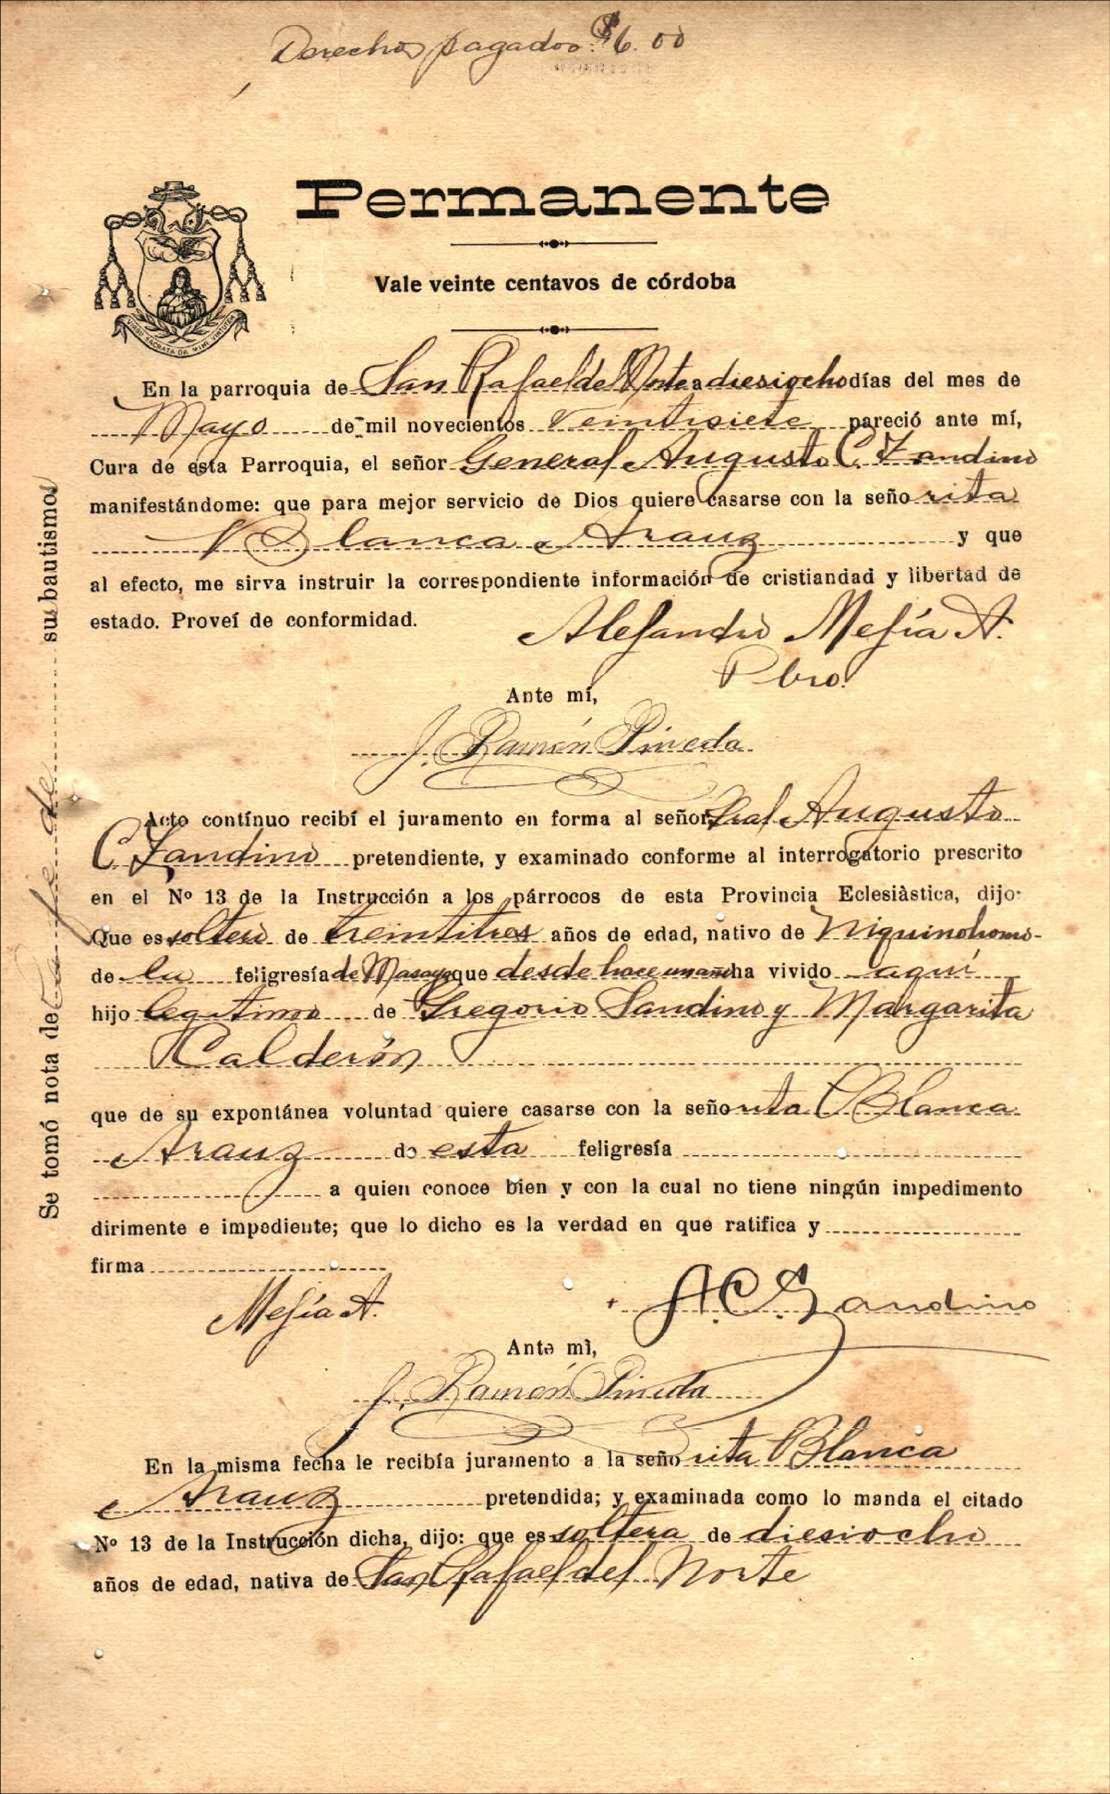 Derechos pagados: $6.00
Permanente
Vale veinte centavos de córdoba
En la parroquia de San Rafael del Norte a diesiocho días del mes de
Mayo de mil novecientos veintisiete pareció ante mí,
Cura de esta Parroquia, el señor General Augusto C. Zandino
manifestándome: que para mejor servicio de Dios quiere casarse con la señorita
Blanca Arauz y que
al efecto, me sirva instruir la correspondiente información de cristiandad y libertad de
estado. Proveí de conformidad.
Alejandro Mejía A.
Pbro.
Ante mí,
J. Ramón Pineda
Acto contínuo recibí el juramento en forma al señor Gral Augusto
C. Zandino pretendiente, y examinado conforme al interrogatorio prescrito
en el Nº 13 de la Instrucción a los párrocos de esta Provincia Eclesiàstica, dijo:
Que es soltero de treintitres años de edad, nativo de Niquinohomo
de la feligresía de Masaya que desde hace un año ha vivido aquí
hijo legitimo de Gregorio Sandino y Margarita
Calderón
que de su expontánea voluntad quiere casarse con la señorita Blanca
Arauz de esta feligresía
a quien conoce bien y con la cual no tiene ningún impedimento
dirimente e impediente; que lo dicho es la verdad en que ratifica y
firma
Mejía A.
A. C. Sandino
Ante mì,
J. Ramón Pineda
En la misma fecha le recibía juramento a la señorita Blanca
Arauz pretendida; y examinada como lo manda el citado
Nº 13 de la Instrucción dicha, dijo: que es soltera de diesiocho
años de edad, nativa de San Rafael del Norte
Se tomó nota de la fe de sus bautismos